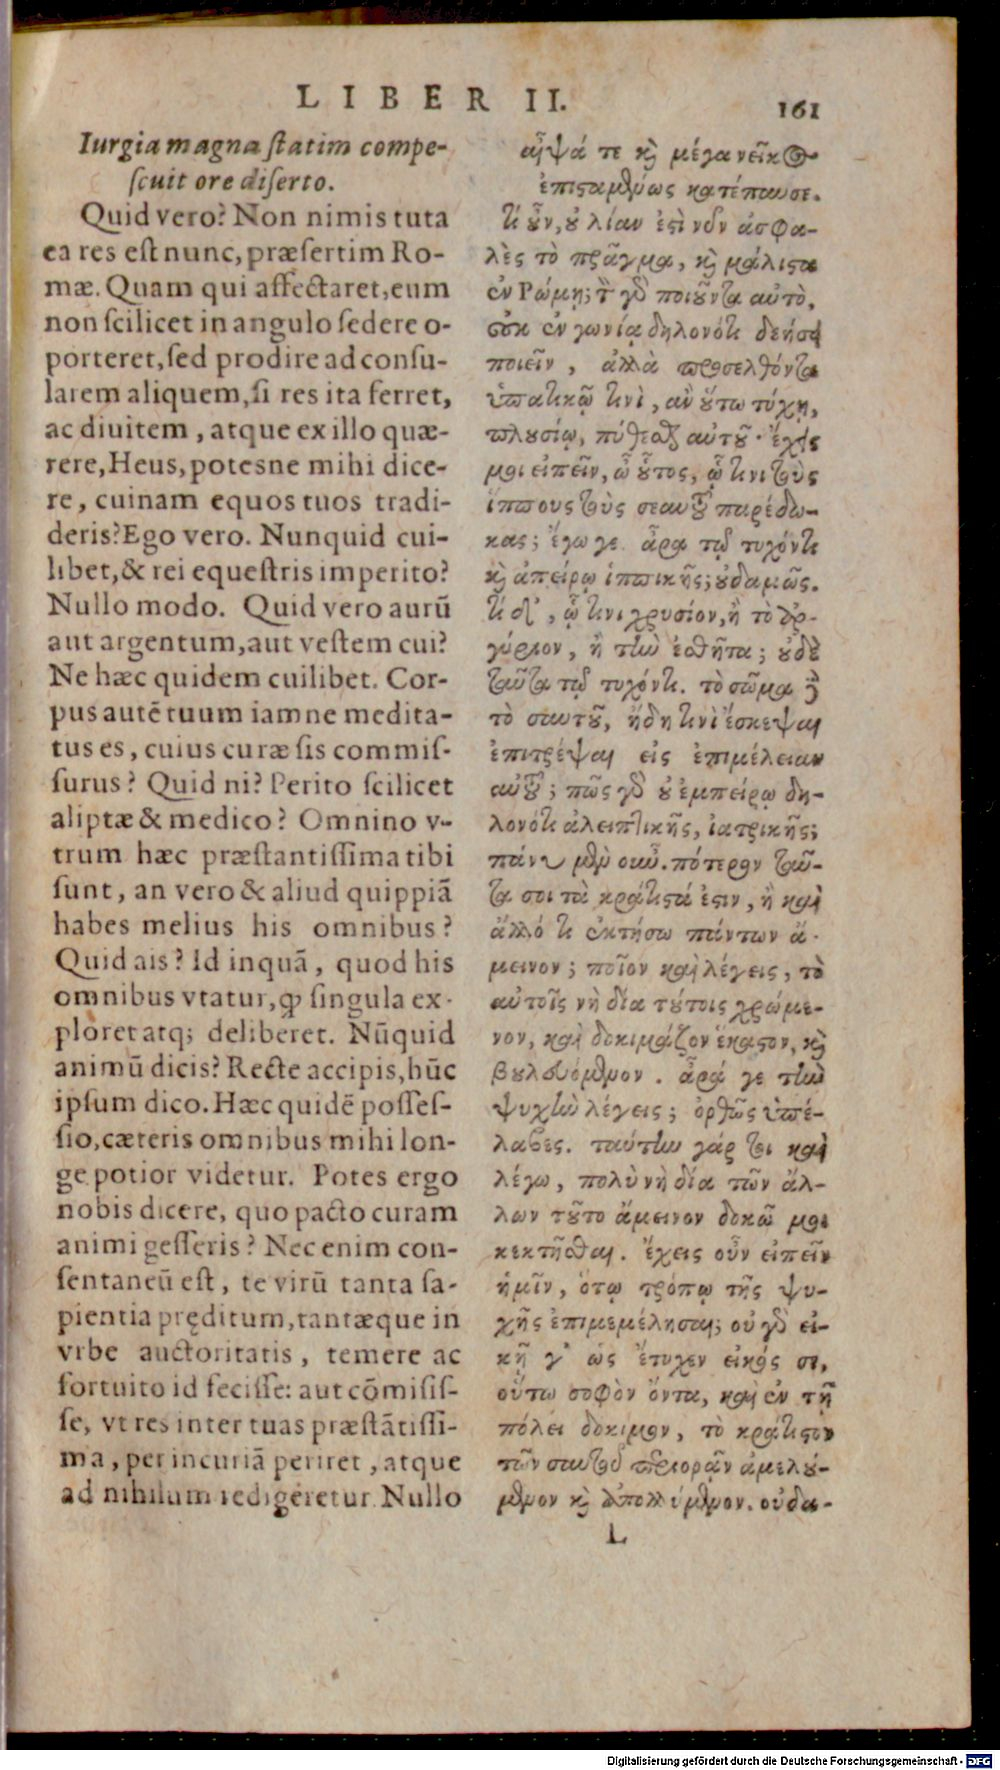 LIBER II. 161
Iurgia magna statim compe-
scuit ore diserto.
Quid vero? Non nimis tuta
ea res est nunc, præsertim Ro-
mæ. Quam qui affectaret, eum
non scilicet in angulo sedere o-
porteret, sed prodire ad consu-
larem aliquem, si res ita ferret,
ac diuitem, atque ex illo quæ-
rere, Heus, potesne mihi dice-
re, cuinam equos tuos tradi-
deris? Ego vero. Nunquid cui-
libet, & rei equestris imperito?
Nullo modo. Quid vero aurū
aut argentum, aut vestem cui?
Ne hæc quidem cuilibet. Cor-
pus autē tuum iamne medita-
tus es, cuius curæ sis commis-
surus? Quid ni? Perito scilicet
aliptæ & medico? Omnino v-
trum hæc præstantissima tibi
sunt, an vero & aliud quippiā
habes melius his omnibus?
Quid ais? Id inquā, quod his
omnibus vtatur, ꝙ singula ex-
ploret atq; deliberet. Nūquid
animū dicis? Recte accipis, hūc
ipsum dico. Hæc quidē posses-
sio, cæteris omnibus mihi lon-
ge potior videtur. Potes ergo
nobis dicere, quo pacto curam
animi gesseris? Nec enim con-
sentaneū est, te virū tanta sa-
pientia pręditum, tantæque in
vrbe auctoritatis, temere ac
fortuito id fecisse: aut cōmisis-
se, vt res inter tuas præstātissi-
ma, per incuriā periret, atque
ad nihilum redigeretur. Nullo
αἶψά τε κὶ μέγα νεῖκος
ἐπισταμένως κατέπαυσε.
τί οὖν, οὐ λίαν ἐστὶ νῦν ἀσφα-
λὲς τὸ πρᾶγμα, κὶ μάλιστα
ἐν Ρώμῃ; τὸν γὸ ποιοῦντα αὐτὸ,
οὐκ ἐν γωνίᾳ δηλονότι δεήσει
ποιεῖν, ἀλλὰ προσελθόντα
ὑπατικῷ τινὶ, ἂν οὕτω τύχῃ,
πλουσίῳ, πύθεσθαι αὐτοῦ· ἔχεις
μοι εἰπεῖν, ὦ οὗτος, ᾧ τινι τοὺς
ἵππους τοὺς σεαυτοῦ παρέδω-
κας; ἔγωγε. ἆρα τῷ τυχόντι
κὶ ἀπείρῳ ἱππικῆς; οὐδαμῶς.
τί δ', ᾧ τινι χρυσίον, ἢ τὸ ἀρ-
γύριον, ἢ τὴν ἐσθῆτα; οὐδὲ
ταῦτα τῷ τυχόντι. τὸ σῶμα δὲ
τὸ σαυτοῦ, ἤδη τινὶ ἔσκεψαι
ἐπιτρέψαι εἰς ἐπιμέλειαν
αὐτοῦ; πῶς γὸ οὐ ἐμπείρῳ δη-
λονότι ἀλειπτικῆς, ἰατρικῆς;
πάνυ μὲν οὖν. πότερον ταῦ-
τα σοι τὰ κράτιστά ἐστιν, ἢ καὶ
ἄλλό τι ἐκτήσω πάντων ἄ-
μεινον; ποῖον καὶ λέγεις, τὸ
αὐτοῖς νὴ δία τούτοις χρώμε-
νον, καὶ δοκιμάζον ἕκαστον, κὶ
βουλευόμενον. ἆρά γε τὴν
ψυχὴν λέγεις; ὀρθῶς ὑπέ-
λαβες. ταύτην γάρ τοι καὶ
λέγω, πολὺ νὴ δία τῶν ἄλ-
λων τοῦτο ἄμεινον δοκῶ μοι
κεκτῆσθαι. ἔχεις οὖν εἰπεῖν
ἡμῖν, ὅτῳ τρόπῳ τῆς ψυ-
χῆς ἐπιμεμέλησαι; οὐ γὸ εἰ-
κῇ γ' ὡς ἔτυχεν εἰκός σε,
οὕτω σοφὸν ὄντα, καὶ ἐν τῇ
πόλει δόκιμον, τὸ κράτιστον
τῶν σαυτοῦ περιορᾷν ἀμελού-
μενον κὶ ἀπολλύμενον. οὐδα-
L
Digitalisierung gefördert durch die Deutsche Forschungsgemeinschaft - DFG